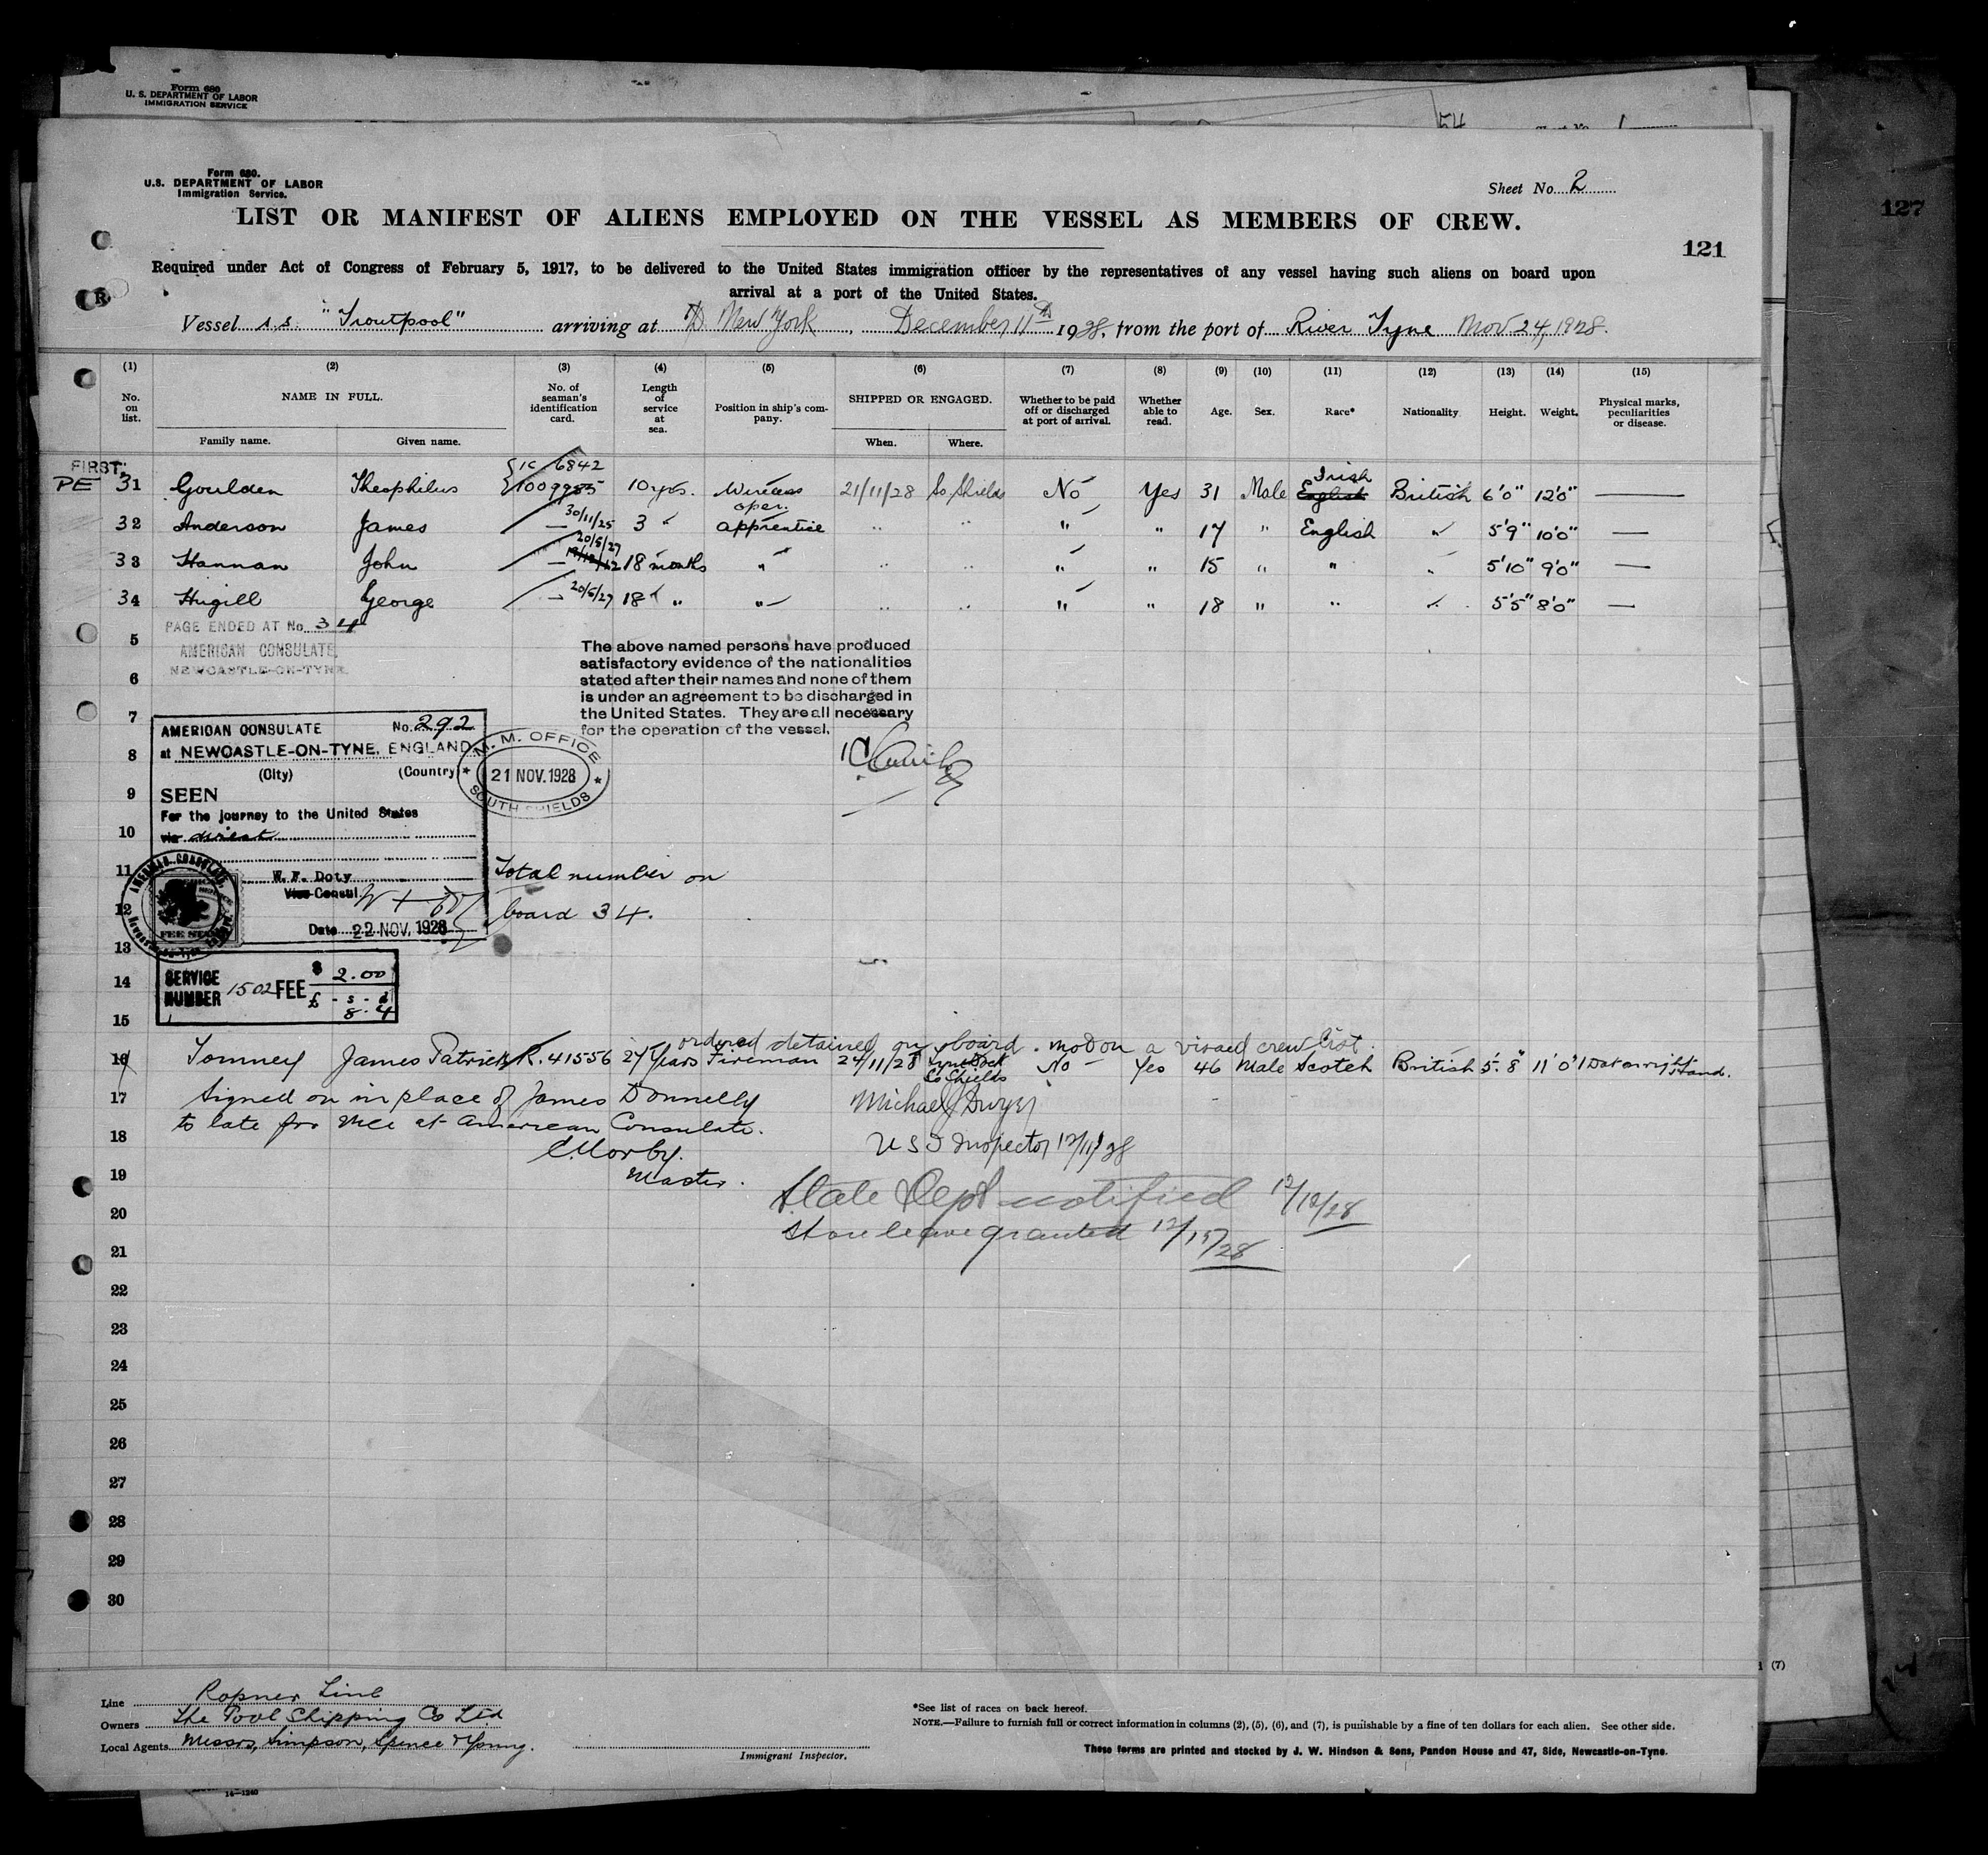 Form 680
U. S. DEPARTMENT OF LABOR
IMMIGRATION SERVICE
54
1
127
Form 680.
U.S. DEPARTMENT OF LABOR
Immigration Service.
Sheet No. 2
LIST OR MANIFEST OF ALIENS EMPLOYED ON THE VESSEL AS MEMBERS OF CREW.
121
Required under Act of Congress of February 5, 1917, to be delivered to the United States immigration officer by the representatives of any vessel having such aliens on board upon
arrival at a port of the United States.
R
Vessel s.s. "Troutpool" arriving at New York, December 11th 1928, from the port of River Tyne Nov 24, 1928.
(1) (2) (3) (4) (5) (6) (7) (8) (9) (10) (11) (12) (13) (14) (15)
No. on list.
NAME IN FULL.
Family name. Given name.
No. of seaman's identification card.
Length of service at sea.
Position in ship's company.
SHIPPED OR ENGAGED.
When. Where.
Whether to be paid off or discharged at port of arrival.
Whether able to read.
Age. Sex. Race* Nationality. Height. Weight.
Physical marks, peculiarities or disease.
FIRST
PE 31 Goulden Theophilus 1C 6842 1009985 10 yrs. Wireless oper. 21/11/28 So Shields No Yes 31 Male English Irish British 6'0" 12'0" —
32 Anderson James — 30/11/25 3 " apprentice " " " " 17 " English " 5'9" 10'0" —
33 Hannan John — 20/5/27 18 months " " " " " 15 " " " 5'10" 9'0" —
34 Hugill George — 20/6/27 18 " " " " " " 18 " " " 5'5" 8'0" —
PAGE ENDED AT No. 34
AMERICAN CONSULATE,
NEWCASTLE-ON-TYNE.
5
6
7
8
9
10
11
12
13
14
15
The above named persons have produced
satisfactory evidence of the nationalities
stated after their names and none of them
is under an agreement to be discharged in
the United States. They are all necessary
for the operation of the vessel.
AMERICAN CONSULATE No. 292
at NEWCASTLE-ON-TYNE, ENGLAND
(City) (Country)
SEEN
For the journey to the United States
via direct
W. F. Doty
Vice Consul
Date 22 NOV. 1928
M. M. OFFICE
21 NOV. 1928
SOUTH SHIELDS
AMERICAN CONSULATE,
FEE STAMP
Total number on
board 34.
SERVICE NUMBER 1502 FEE $ 2.00
£ - s - d
8 . 4
ordered detained on board. not on a visaed crew list.
16 Tomney James Patrick R. 41556 27 Years Fireman 24/11/28 Tyne Dock So Shields No Yes 46 Male Scotch British 5'.8" 11'0" 1 Dot on right Hand.
17 Signed on in place of James Donnelly
to late for vice at American Consulate.
Michael J Dwyer
18
U S I Inspector 12/11/28
C. Morby.
Master.
19
State Dept notified 12/12/28
20
Shore leave granted 12/15/28
21
22
23
24
25
26
27
28
29
30
(7)
Line Ropner Line
Owners The Pool Shipping Co Ltd
Local Agents Messrs, Simpson, Spence & Young.
Immigrant Inspector.
*See list of races on back hereof.
NOTE.—Failure to furnish full or correct information in columns (2), (5), (6), and (7), is punishable by a fine of ten dollars for each alien. See other side.
These forms are printed and stocked by J. W. Hindson & Sons, Pandon House and 47, Side, Newcastle-on-Tyne.
14—1240